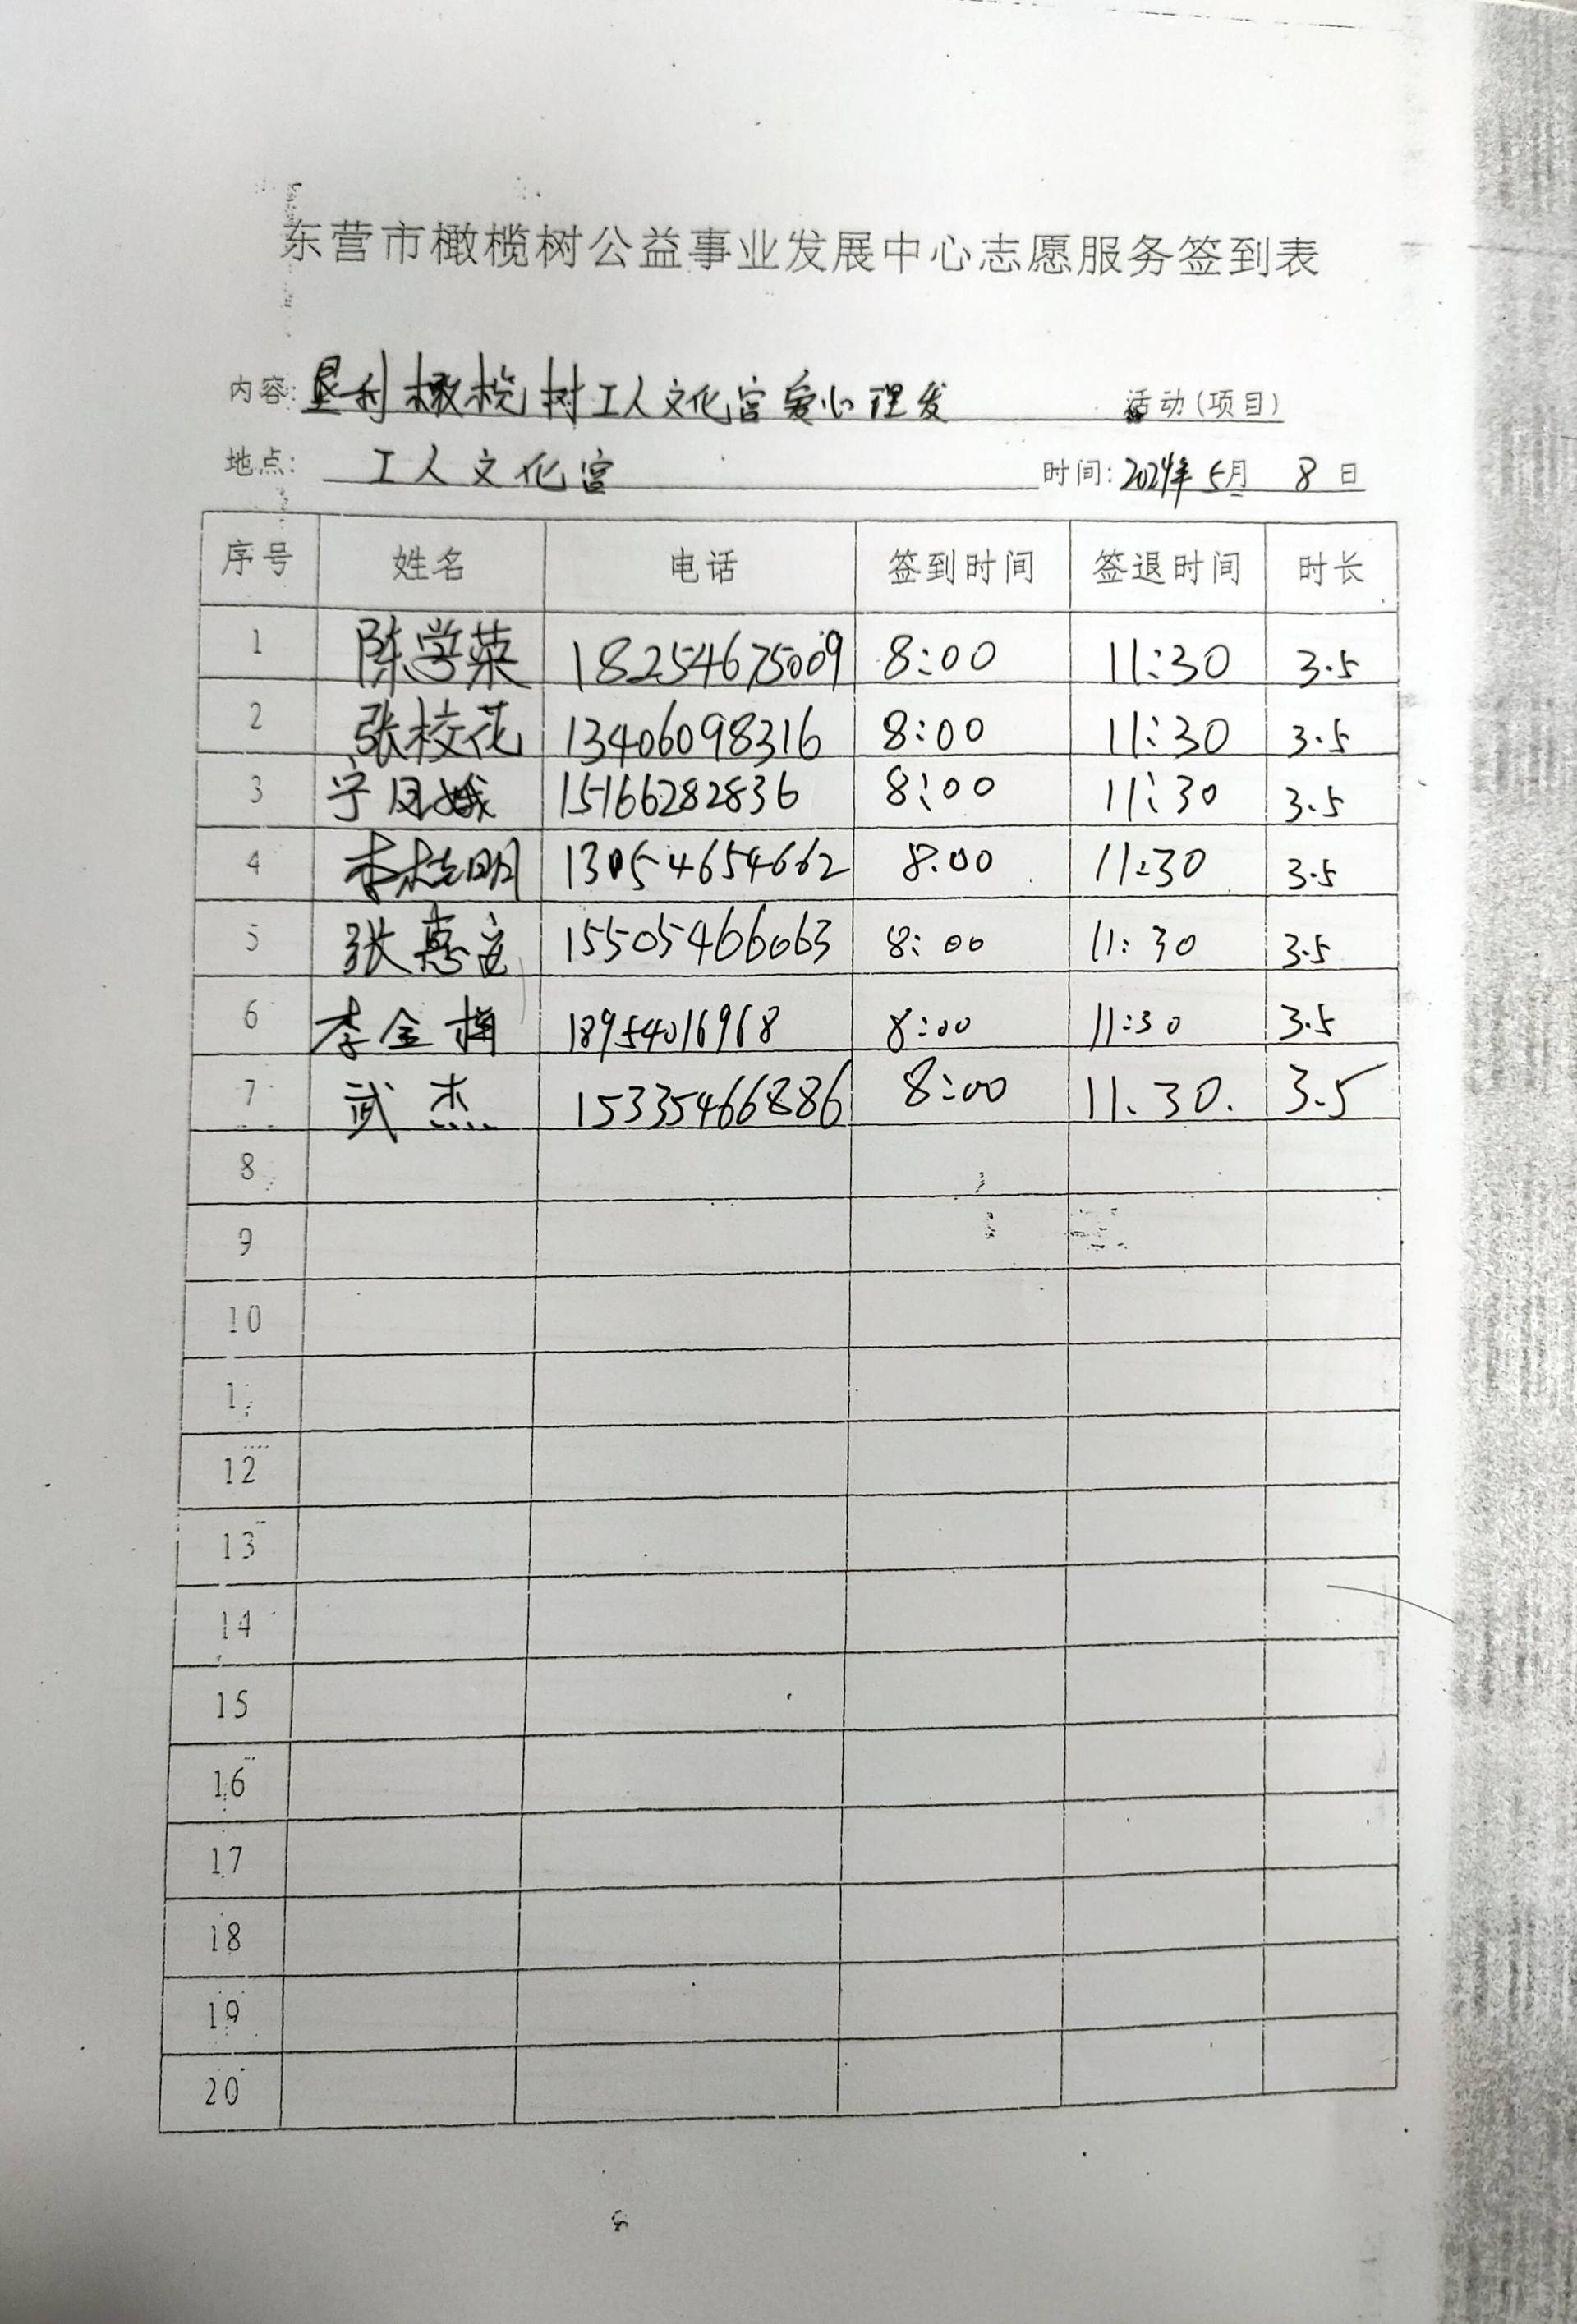 东营市橄榄树公益事业发展中心志愿服务签到表
内容: 垦利橄榄树工人文化宫爱心理发 活动(项目)
地点: 工人文化宫 时间: 2024年 5月 8日
序号 姓名 电话 签到时间 签退时间 时长
1 陈学荣 18254675009 8:00 11:30 3.5
2 张校花 13406098316 8:00 11:30 3.5
3 宁月娥 15166282836 8:00 11:30 3.5
4 李志明 13054654662 8.00 11:30 3.5
5 张惠 15505466063 8:00 11:30 3.5
6 李金梅 18954016968 8:00 11:30 3.5
7 武杰 15335466886 8:00 11.30. 3.5
8
9
10
1
12
13
14
15
16
17
18
19
20